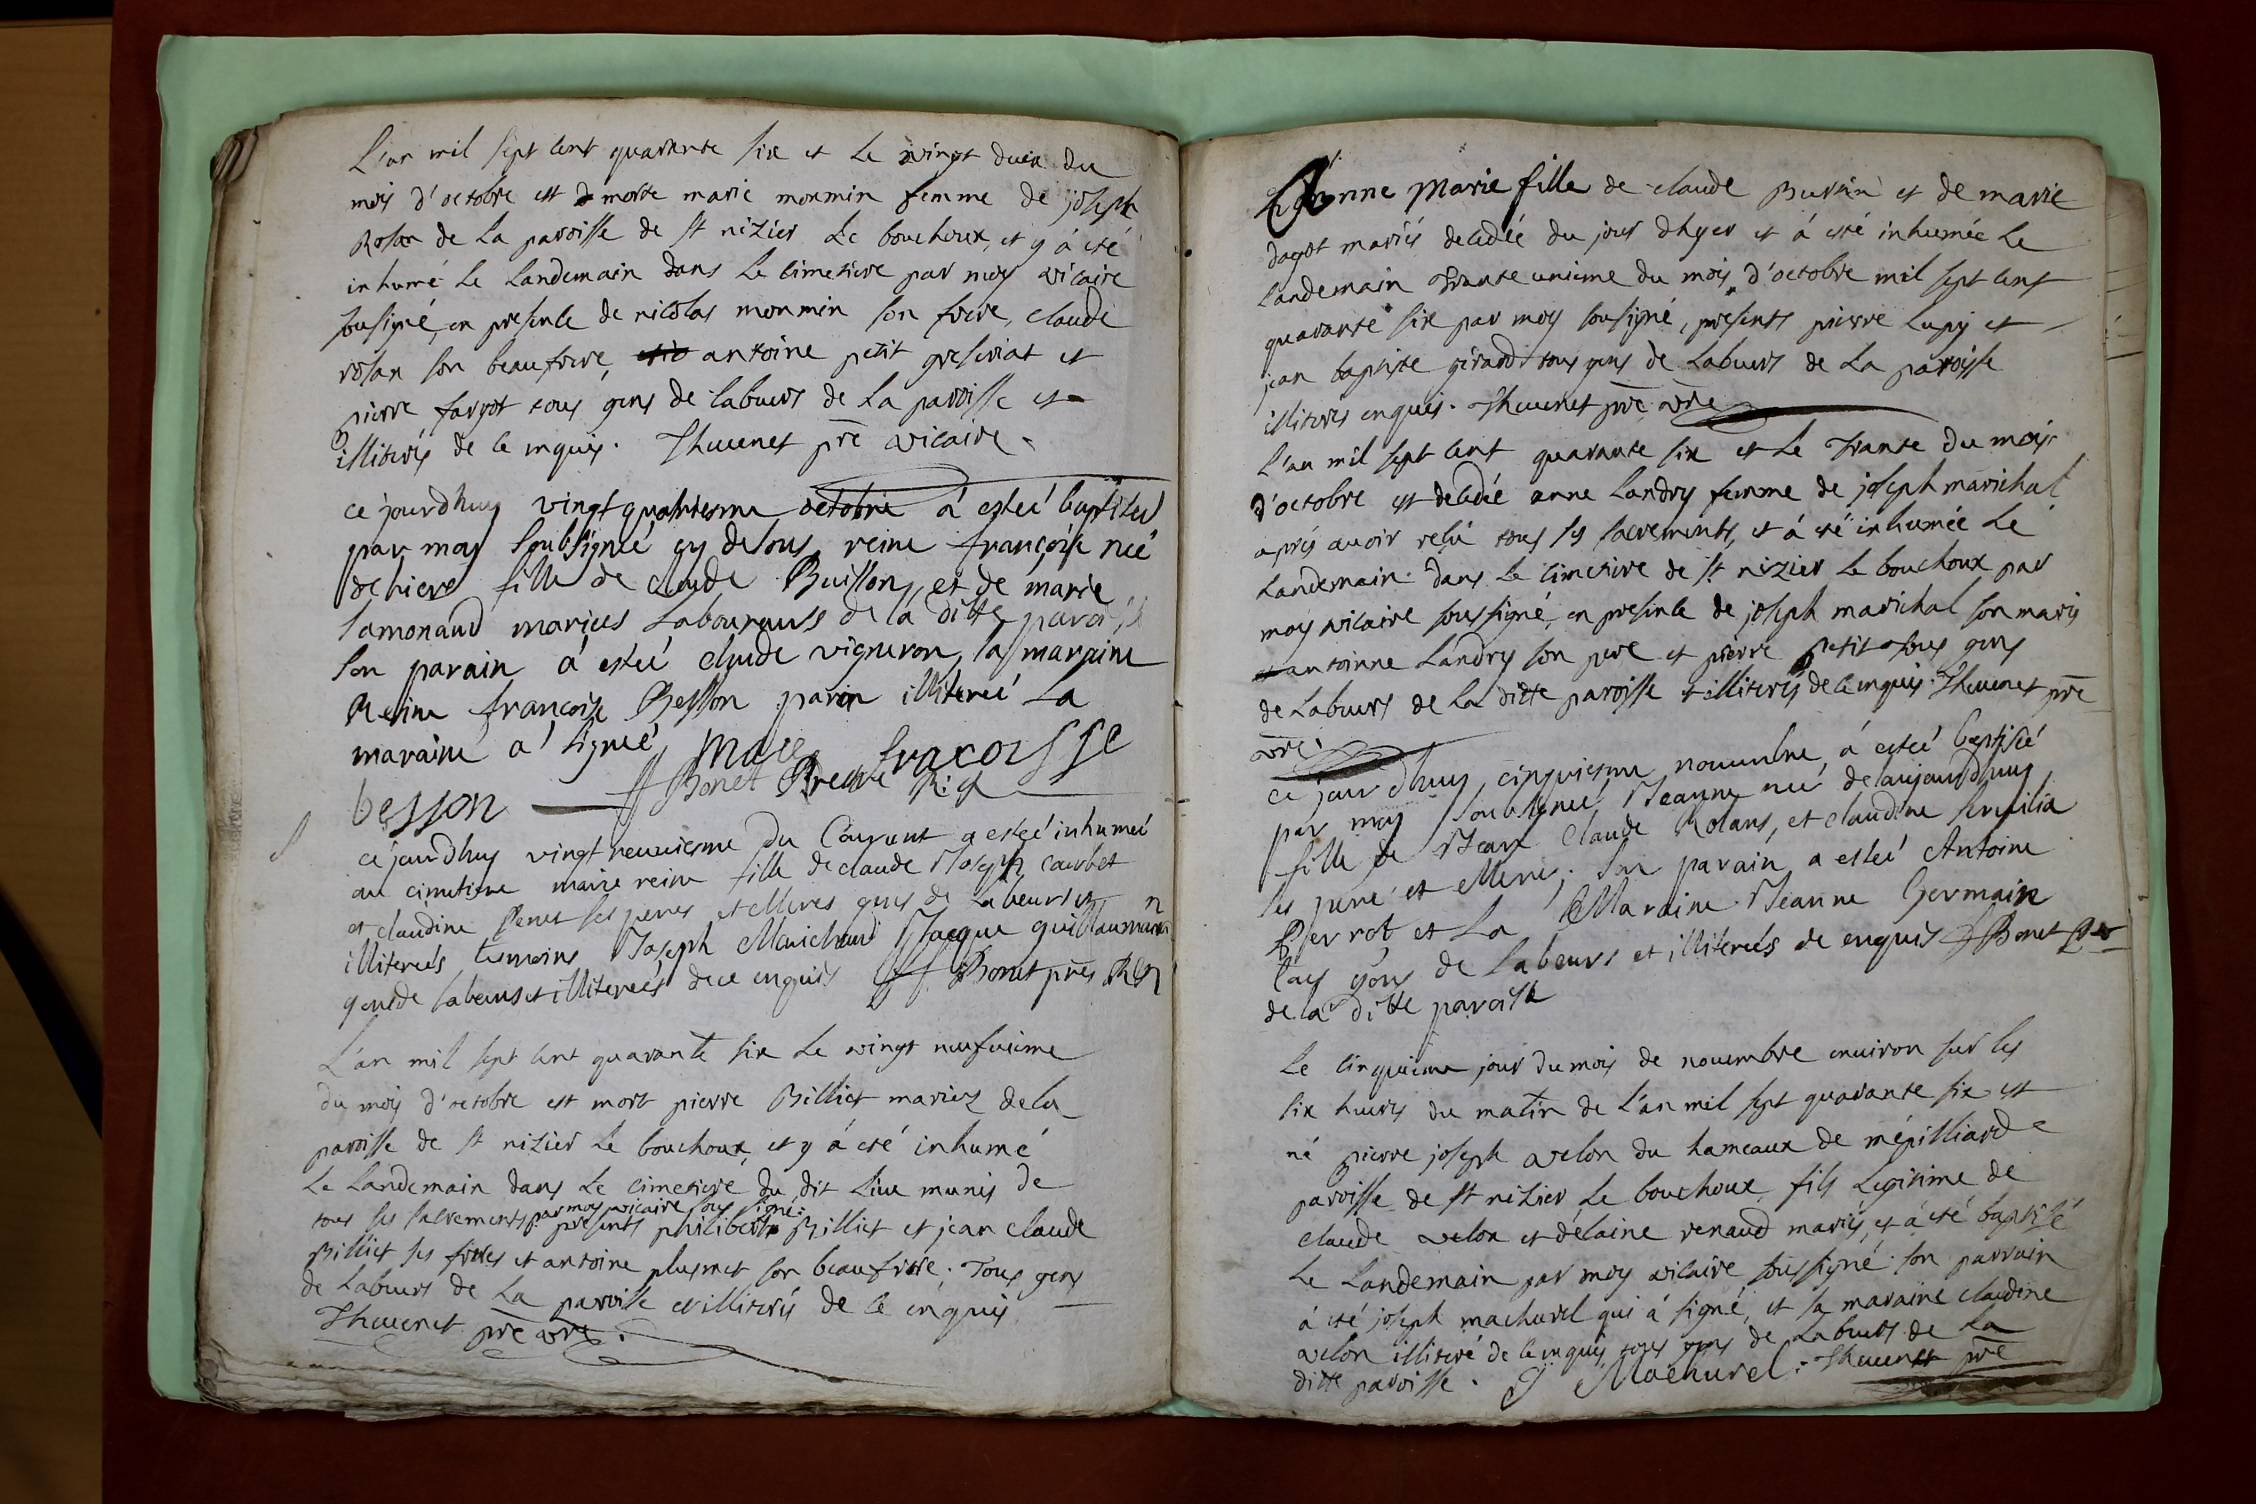 L'an mil sept cent quarante six et le vingt deux du
mois d'octobre est morte marie monmin femme de joseph
Rosan de la paroisse de st nizier le bouchoux, et y á eté
inhumé le landemain dans le cimetiere par moy vicaire
sousigné, en presence de nicolas monmin son frere, claude
rosan son beaufrere, antoine petit et
pierre fargot tous gens de labeurs de la paroisse et
illiterés de ce inquis. Thevenet pre vicaire.
ce jourdhuy vingt quatriesme octobre á esteé baptiseé
par moy soubsigneé cy desous reine françoise neé
de hiere fille de claude Buisson, et de marie
lamonaud mariees laboureurs de la ditte paroisse
son parain á esteé claude vigneron, la maraine
Reine françoise Besson parain illitereé la
maraine a signeé,
besson Bonet
ce jourdhuy vingt neuviesme du Courent a esteé inhumeé
au cimetiere marie reine fille de claude Joseph courbet
et claudine Penet ses peres et Meres gens de labeurs et
illitereés temoins Joseph Marichand Jacque guillaumann
gens de labeurs et illitereés de ce enquis Bonet pres
L'an mil sept cent quarante six le vingt neufvieme
du mois d'octobre est mort pierre Billiet mariez de la
paroisse de st nizier le bouchoux, et y á eté inhumé
le landemain dans le cimetiere du dit lieu munis de
par moy vicaire sous signé.
tous ses sacrements presents philibert Billiet et jean claude
Billiet ses freres et antoine plusmet son beaufrere. Tous gens
de labeurs de la paroisse et illiterés de ce enquis
Thevenet pre vre.
anne Marie fille de claude Burtin et de marie
dagot mariés decedée du jour dhyer et á eté inhumée le
landemain trante unieme du mois d'octobre mil sept cent
quarante six par moy sousigné, presents pierre lupy et
jean baptiste girard tous gens de labeurs de la paroisse
illiterés enquis. Thevenet pre vre
L'an mil sept cent quarante six et le trante du mois
d'octobre est decedée anne landry femme de joseph marichal
aprés avoir reçu tous ses sacrements, et á eté inhumée le
landemain dans le cimetiere de st nizier le bouchoux par
moy vicaire soussigné, en presence de joseph marichal son maris
antoinne landry son pere et pierre petit tous gens
de labeurs de la ditte paroisse illiterés de ce inquis. Thevenet pre
vre.
ce jourdhuy cinquiesme novembre, á esteé baptiseé
par moy soubsigneé, Jeanne neé de aujourdhuy
fille de Jean Claude Rolans, et claudine
ses pere et Mere; son parain a esteé Antoine
Perrot et La Maraine Jeanne Germain
tous gens de labeurs et illitereés de enquis Bonet
de la ditte paroisse
Le cinquieme jour du mois de novembre environ sur les
six heures du matin de l'an mil sept quarante six est
né pierre joseph velon du hameaux de mépilliard
paroisse de st nizier le bouchoux fils legitime de
claude velon et délaine renaud mariés, et á eté baptisé
le landemain par moy vicaire soussigné. son parrain
á eté joseph machurel qui á signé, et sa maraine claudine
velon illiteré de ce inquis tous gens de labeurs de la
ditte paroisse. J Machurel. Thevenet pre